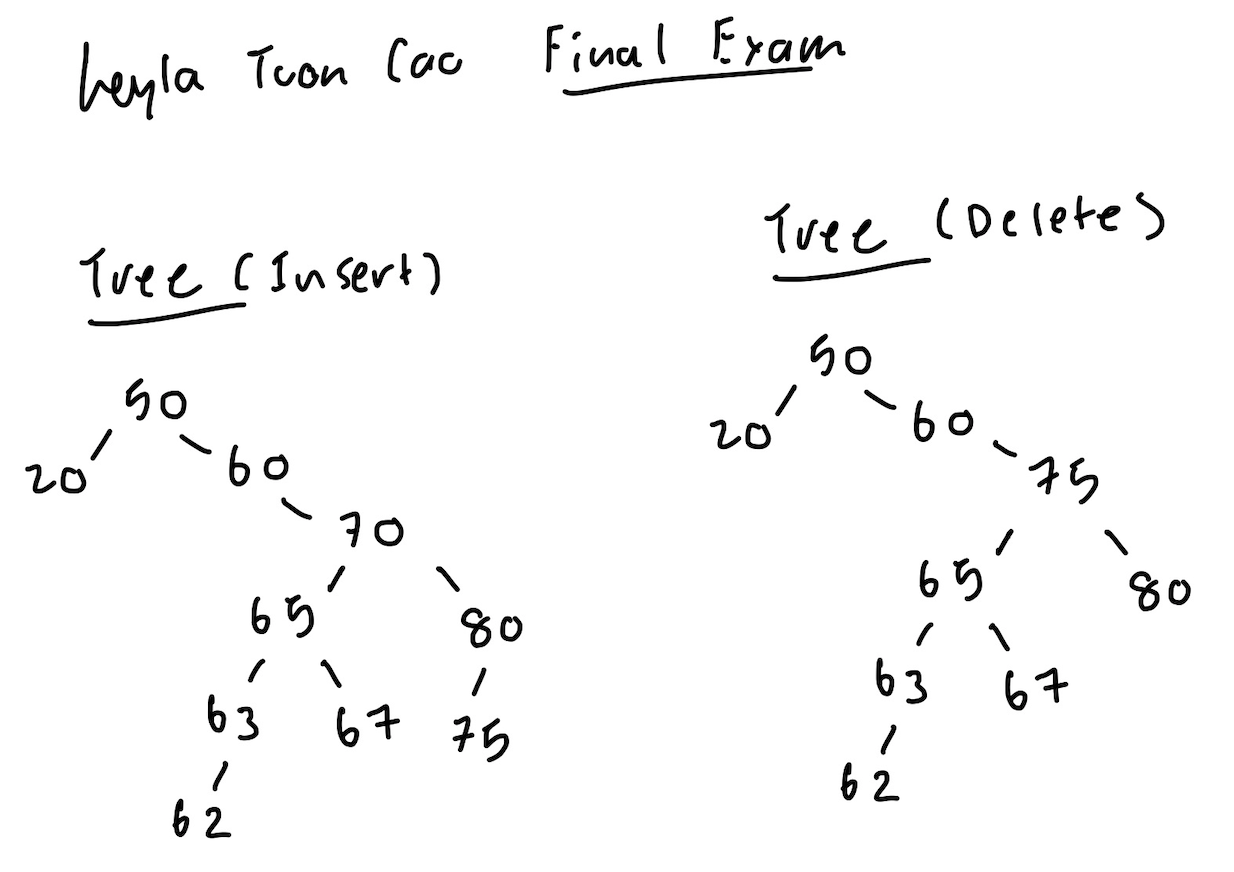 Leyla Toon Cao Final Exam
Tree (Insert)
50
20 60
70
65 80
63 67 75
62
Tree (Delete)
50
20 60
75
65 80
63 67
62